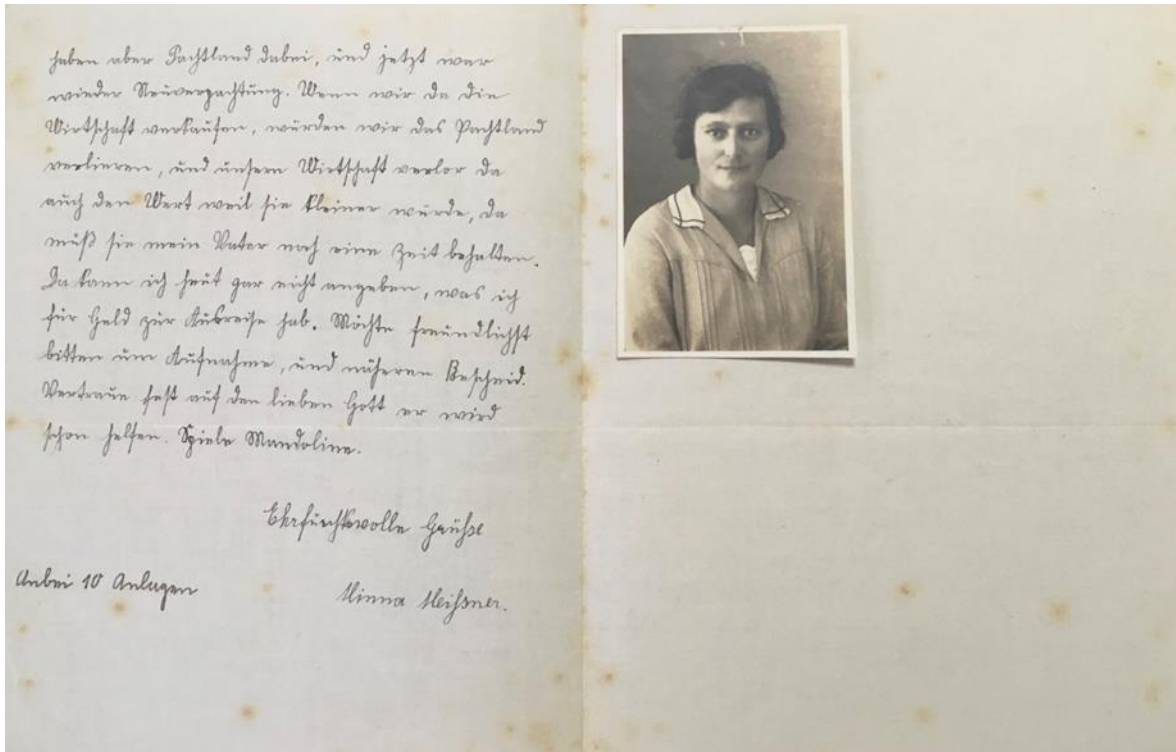 haben aber Pachtland dabei, und jetzt war
wieder Neuverpachtung. Wenn wir da die
Wirtschaft verkaufen, würden wir das Pachtland
verlieren, und unsere Wirtschaft verlor da
auch den Wert weil sie kleiner würde, da
muß sie mein Vater noch eine Zeit behalten.
Da kann ich heut gar nicht angeben, was ich
für Geld zur Ausreise hab. Möchte freundlichst
bitten um Aufnahme, und näheren Bescheid.
Vertraue fest auf den lieben Gott er wird
schon helfen. Spiele Mandoline.
Ehrfurchtsvolle Grüße
Anbei 10 Anlagen
Minna Meißner.